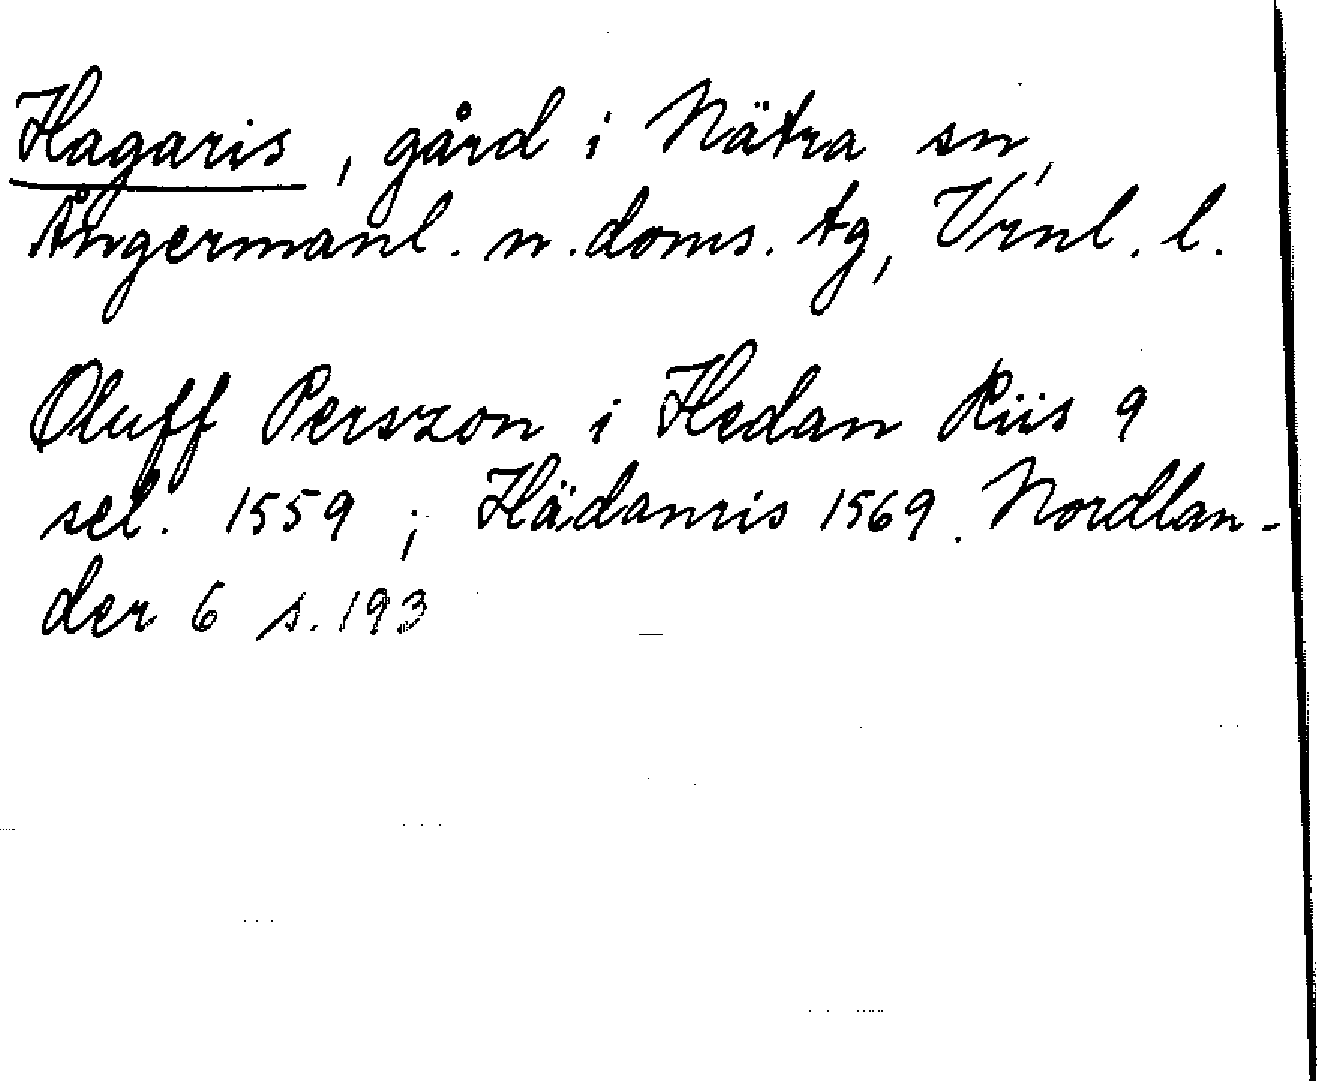 Hagaris, gård i Nätra sn,
Ångermanl. n. doms. tg, Vrnl. l.
Oluff Perszon i Hedan Riis 9
sel. 1559; Hädanris 1569. Nordlan-
der 6 s. 193